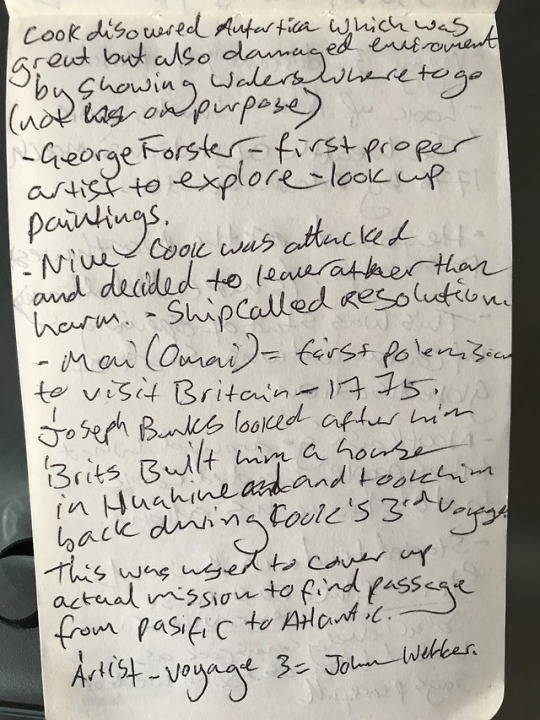 Cook disovered Antartica which was
great but also damaged enviroment
by showing walers where to go
(not on purpose)
- George Forster - first proper
artist to explore - look up
paintings.
- Niue - Cook was attacked
and decided to leave rather than
harm. - Ship called resolution
- Mai (Omai) = first polenisian
to visit Britain - 1775.
Joseph Banks looked after him
Brits Built him a house
in Huahine and and took him
back during Cook's 3rd voyage
This was used to cover up
actual mission to find passage
from pasific to Atlantic.
Artist - voyage 3 = John Webber.